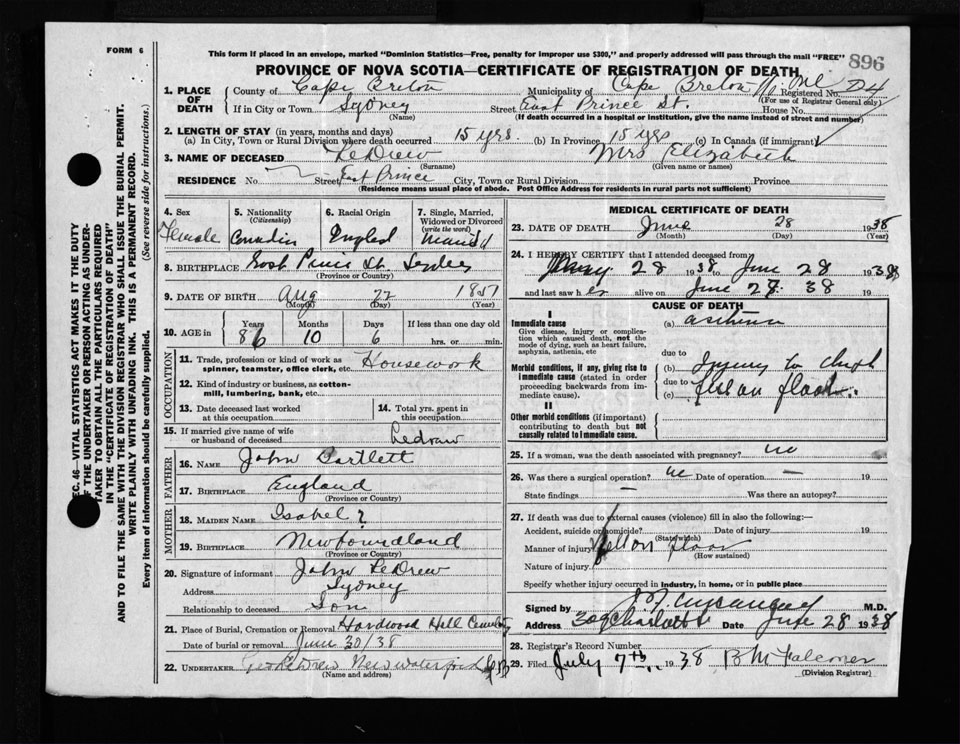 FORM 6
This form if placed in an envelope, marked "Dominion Statistics—Free, penalty for improper use $300," and properly addressed will pass through the mail "FREE"
896
PROVINCE OF NOVA SCOTIA—CERTIFICATE OF REGISTRATION OF DEATH
1. PLACE OF DEATH
County of Cape Breton Municipality of Cape Breton Registered No.
(For use of Registrar General only)
If in City or Town Sydney Street East Prince St. House No.
(Name) (If death occurred in a hospital or institution, give the name instead of street and number)
2. LENGTH OF STAY (in years, months and days)
(a) In City, Town or Rural Division where death occurred 15 yrs. (b) In Province 15 yrs (c) In Canada (if immigrant)
3. NAME OF DECEASED LeDrew Mrs Elizabeth
(Surname) (Given name or names)
RESIDENCE No. Street East Prince City, Town or Rural Division Province
(Residence means usual place of abode. Post Office Address for residents in rural parts not sufficient)
4. Sex Female
5. Nationality (Citizenship)
6. Racial Origin
7. Single, Married, Widowed or Divorced (write the word)
8. BIRTHPLACE
(Province or Country)
9. DATE OF BIRTH Aug 22 1851
(Month) (Day) (Year)
10. AGE in Years Months Days If less than one day old
86 10 6 hrs. or min.
OCCUPATION
11. Trade, profession or kind of work as spinner, teamster, office clerk, etc. Housework
12. Kind of industry or business, as cotton-mill, lumbering, bank, etc.
13. Date deceased last worked at this occupation
14. Total yrs. spent in this occupation
15. If married give name of wife or husband of deceased Ledraw
FATHER
16. NAME John Bartlett
17. BIRTHPLACE England
(Province or Country)
MOTHER
18. MAIDEN NAME Isabel ?
19. BIRTHPLACE Newfoundland
(Province or Country)
20. Signature of informant John LeDrew
Address Sydney
Relationship to deceased Son
21. Place of Burial, Cremation or Removal Hardwood Hill Cemetery
Date of burial or removal June 30/38
22. UNDERTAKER Geo LeDrew New Waterford C.B.
(Name and address)
MEDICAL CERTIFICATE OF DEATH
23. DATE OF DEATH June 28 1938
(Month) (Day) (Year)
24. I HEREBY CERTIFY that I attended deceased from
28 1938 to June 28 1938
and last saw her alive on June 28 38
CAUSE OF DEATH
I
Immediate cause
Give disease, injury or complication which caused death, not the mode of dying, such as heart failure, asphyxia, asthenia, etc
(a)
due to
Morbid conditions, if any, giving rise to immediate cause (stated in order proceeding backwards from immediate cause).
(b) Injury to
due to
(c)
II
Other morbid conditions (if important) contributing to death but not causally related to immediate cause.
25. If a woman, was the death associated with pregnancy? no
26. Was there a surgical operation? no Date of operation — 19
State findings — Was there an autopsy?
27. If death was due to external causes (violence) fill in also the following:—
Accident, suicide or homicide? Date of injury 19
(State which)
Manner of injury fell on floor
(How sustained)
Nature of injury
Specify whether injury occurred in industry, in home, or in public place
Signed by M.D.
Address 309 Charlotte Date June 28 1938
28. Registrar's Record Number
29. Filed July 7th 1938 B M Falconer
(Division Registrar)
SEC. 46—VITAL STATISTICS ACT MAKES IT THE DUTY
OF THE UNDERTAKER OR PERSON ACTING AS UNDER-
TAKER TO OBTAIN ALL THE PARTICULARS REQUIRED
IN THE "CERTIFICATE OF REGISTRATION OF DEATH"
AND TO FILE THE SAME WITH THE DIVISION REGISTRAR WHO SHALL ISSUE THE BURIAL PERMIT.
WRITE PLAINLY WITH UNFADING INK. THIS IS A PERMANENT RECORD.
Every item of information should be carefully supplied. (See reverse side for instructions.)